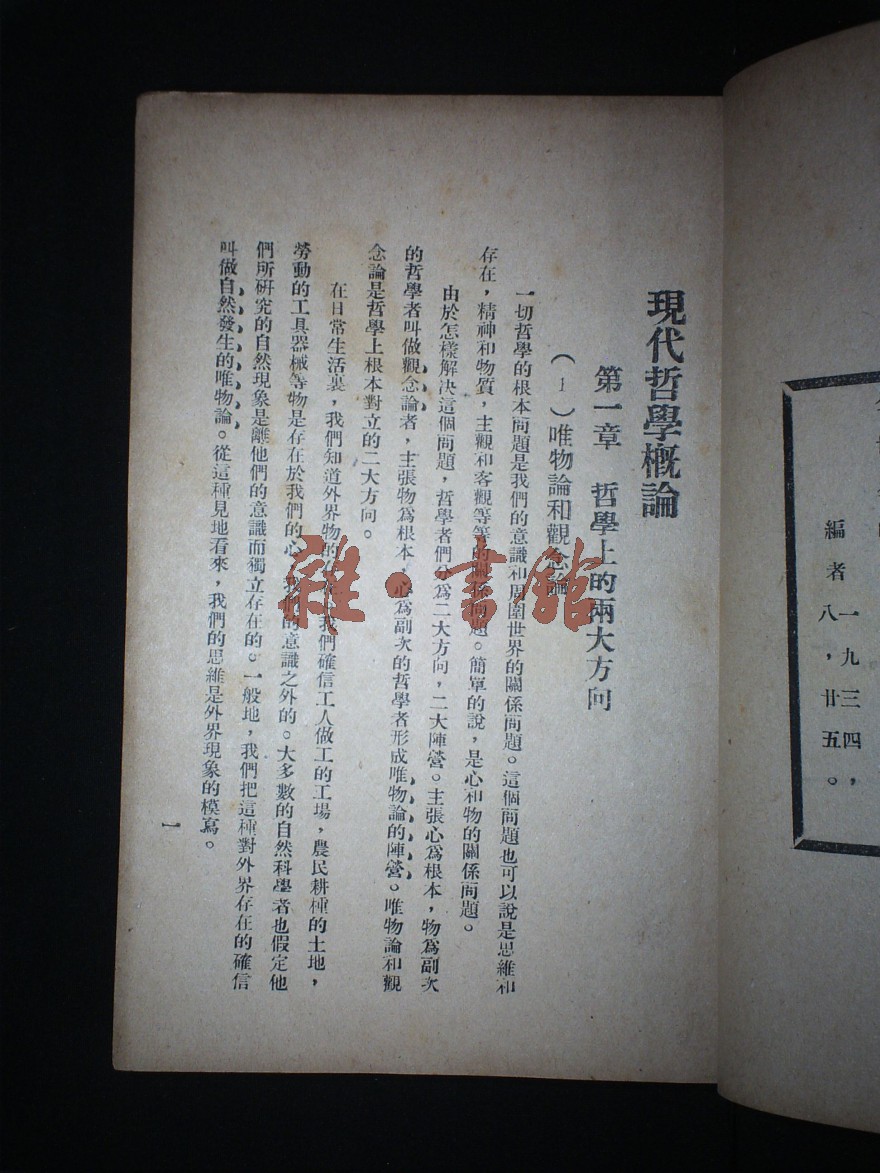 編者 一九三四，
八，廿五。
現代哲學概論
第一章　哲學上的兩大方向
（1）唯物論和觀念論
一切哲學的根本問題是我們的意識和周圍世界的關係問題。這個問題也可以說是思維和
存在，精神和物質，主觀和客觀等等的關係問題。簡單的說，是心和物的關係問題。
由於怎樣解決這個問題，哲學者們分爲二大方向，二大陣營。主張心爲根本，物爲副次
的哲學者叫做觀念論者，主張物爲根本，心爲副次的哲學者形成唯物論的陣營。唯物論和觀
念論是哲學上根本對立的二大方向。
在日常生活裏，我們知道外界物的我們確信工人做工的工場，農民耕種的土地，
勞動的工具器械等物是存在於我們的心，我們的意識之外的。大多數的自然科學者也假定他
們所硏究的自然現象是離他們的意識而獨立存在的。一般地，我們把這種對外界存在的確信
叫做自然發生的唯物論。從這種見地看來，我們的思維是外界現象的模寫。
一
雜·書館